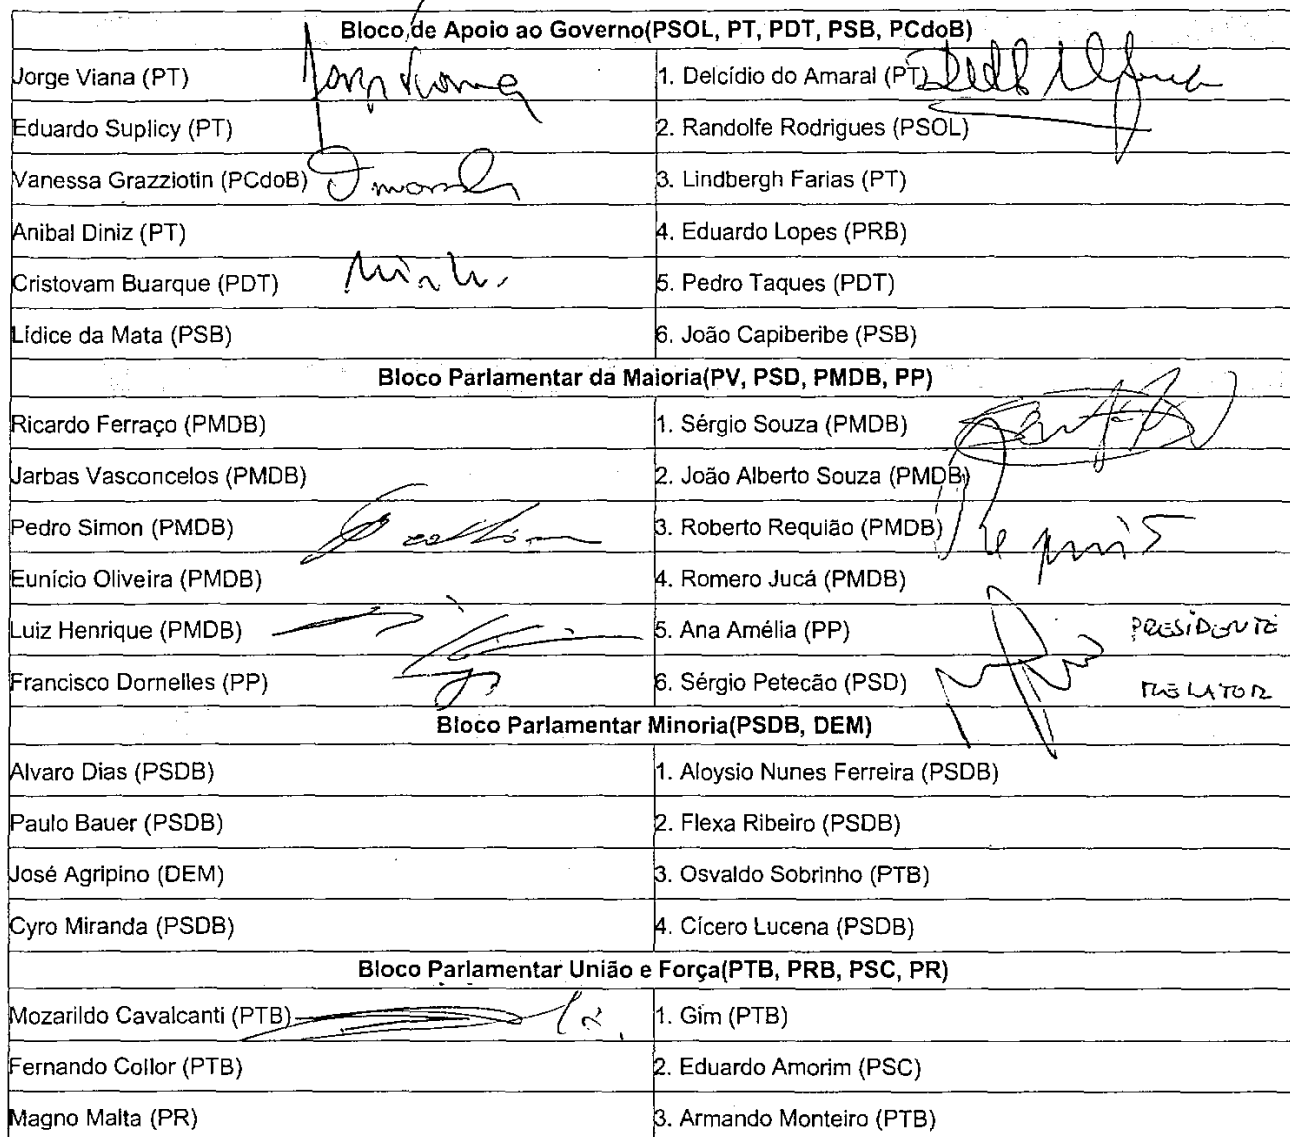 Bloco de Apoio ao Governo(PSOL, PT, PDT, PSB, PCdoB)
Jorge Viana (PT) 1. Delcídio do Amaral (PT)
Eduardo Suplicy (PT) 2. Randolfe Rodrigues (PSOL)
Vanessa Grazziotin (PCdoB) 3. Lindbergh Farias (PT)
Anibal Diniz (PT) 4. Eduardo Lopes (PRB)
Cristovam Buarque (PDT) 5. Pedro Taques (PDT)
Lídice da Mata (PSB) 6. João Capiberibe (PSB)
Bloco Parlamentar da Maioria(PV, PSD, PMDB, PP)
Ricardo Ferraço (PMDB) 1. Sérgio Souza (PMDB)
Jarbas Vasconcelos (PMDB) 2. João Alberto Souza (PMDB)
Pedro Simon (PMDB) 3. Roberto Requião (PMDB)
Eunício Oliveira (PMDB) 4. Romero Jucá (PMDB)
Luiz Henrique (PMDB) 5. Ana Amélia (PP) PRESIDENTE
Francisco Dornelles (PP) 6. Sérgio Petecão (PSD) RELATOR
Bloco Parlamentar Minoria(PSDB, DEM)
Alvaro Dias (PSDB) 1. Aloysio Nunes Ferreira (PSDB)
Paulo Bauer (PSDB) 2. Flexa Ribeiro (PSDB)
José Agripino (DEM) 3. Osvaldo Sobrinho (PTB)
Cyro Miranda (PSDB) 4. Cícero Lucena (PSDB)
Bloco Parlamentar União e Força(PTB, PRB, PSC, PR)
Mozarildo Cavalcanti (PTB) 1. Gim (PTB)
Fernando Collor (PTB) 2. Eduardo Amorim (PSC)
Magno Malta (PR) 3. Armando Monteiro (PTB)